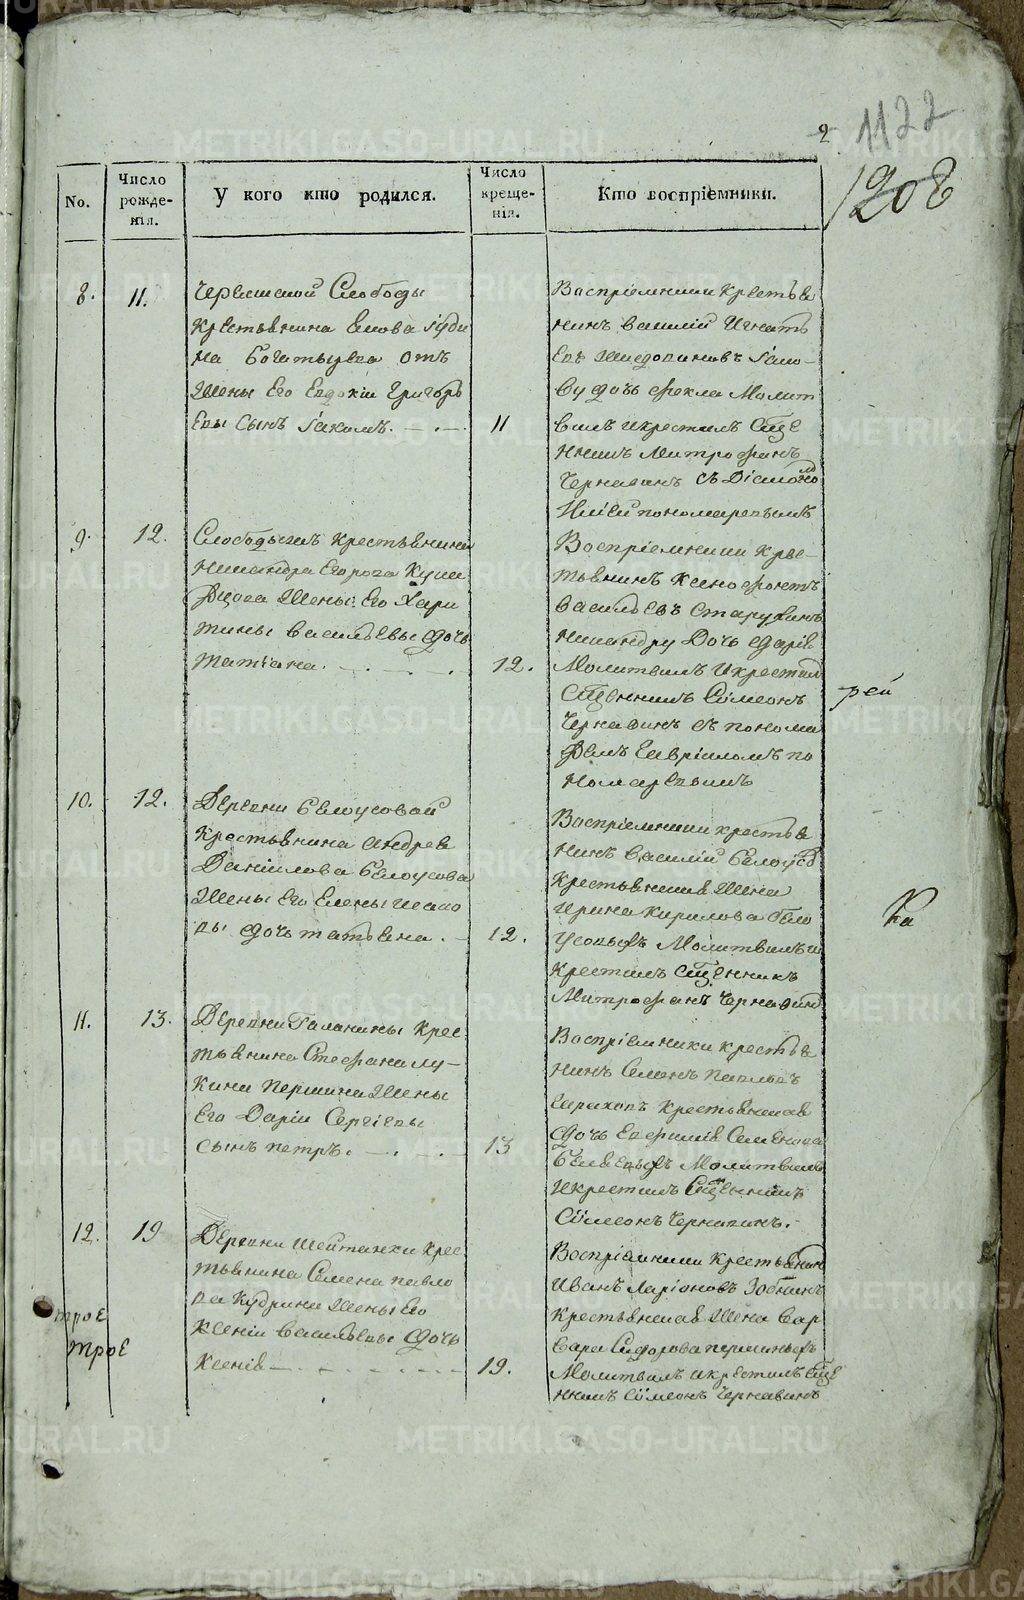 2
1122
1208
No.
Число рожде-нія.
У кого кто родился.
Число креще-нія.
Кто воспріемники.
8. 11.
Крестьянина
на Богатырева отъ
жены его Евдокіи Григорь
евы сынъ Іаковъ. 11
Воспріемники крестья
нинъ василій Игнать
дочь Фекла Молит
вилъ икрестилъ Сще
нникъ Митрофанъ
Чернавинъ съ
пономаревымъ
9. 12.
Крестьянина
жены Его Хари
тины васильевы дочь
татіана. 12.
Воспріемники кре-
тьянинъ Ксенофонтъ
васильевъ
Дочь дарія
Молитвилъ Икрестил
Сщенникъ Сѵмеонъ
Чернавинъ съ понома
рей
Гавріиломъ по
номаревымъ
10. 12.
Деревни Белоусовой
Крестьянина андрея
Даніилова Белоусова
жены Его Елены
вы дочь татьяна. 12.
Воспріемники крестья
нинъ василій белоусо
крестьянская жена
ирина кирилова бело
усовыхъ Молитвилъ и
крестилъ Сщенникъ
Митрофанъ Чернавин
ка
11. 13.
Деревни Галанины крес
тьянина Стефана лу-
кина першина жены
его Даріи Сергіевы
сынъ петръ. 13
Воспріемники крестья
нинъ Семенъ павловъ
крестьянская
дочь Евфимія Семенова
Молитвилъ
Икрестилъ Сщенникъ
Сѵмеонъ Чернавинъ.
12. 19
Деревни Шейтанки крес
тьянина Семена павло
ва кудрина жены Его
ксеніи васильевы дочь
ксенія 19.
Воспріемники крестьянин
иванъ ларіоновъ Зобнинъ
крестьянская жена вар
вара Сидорова першиныхъ
Молитвилъ икрестилъ Сще
нникъ Сѵмеонъ Чернавинъ
трое
трое
METRIKI.GASO-URAL.RU